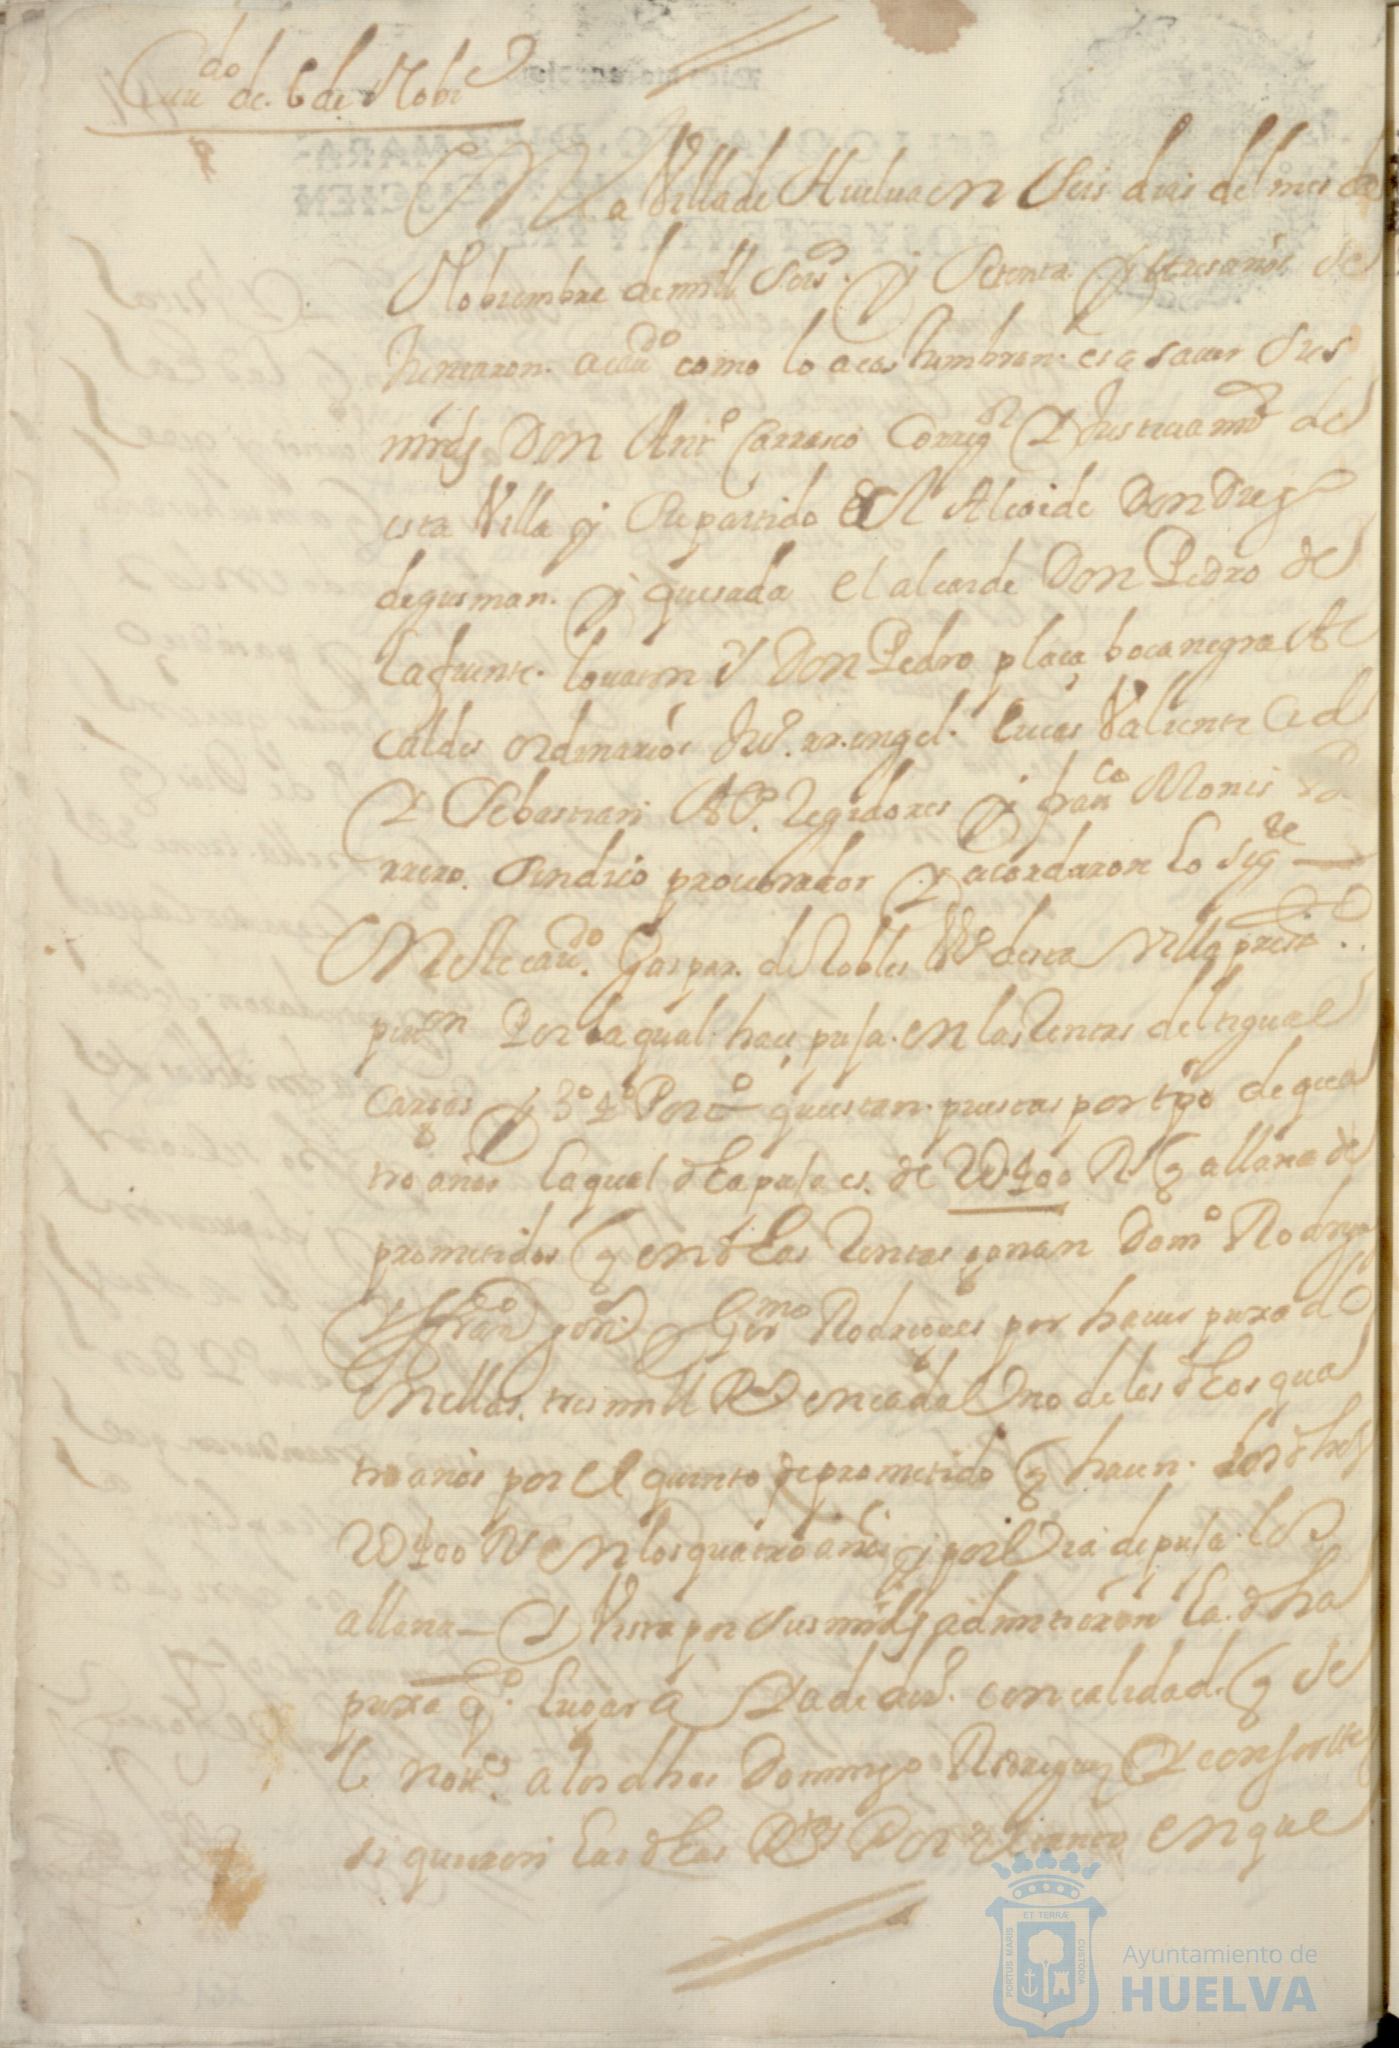 Cau.do de 6 de Nobre
En la Villa de Huelua en seis dias del mes de
Nobiembre de mill seisos. y setenta y tres años se
juntaron a caudo como lo acostumbran es a saver sus
mrds Don Anto Carrasco Corregor y Justicia mor de
esta Villa y su partido el Alcaide Don Diego
de gusman y quesada el alcaide Don Pedro de
la fuente y Don Pedro plaça bocanegra Al
caldes ordinarios Juo. rrengel Lucas Valiente
y Sebastian regidores y franco Monis
rrero sindico procurador y acordaron lo sigte
En este caudo. Gaspar de Robles Vo desta villa presto.
pion Por la qual haçe pusa en las Rentas del
y 3o 4o Por co que estan puestas por tpo de qua
tro años la qual dha pusa es de Rs y allana de
prometidos q en dhas Rentas ganan Domo Rodrigs
y franco y Germo Rodrigues por hauer puxado
en ellas tres mill Rs en cada Uno de los dhos qua
tro años por el quinto de prometido q hacen los dhos
Rs en los quatro años y por Via de pusa los
allana y Vista por sus mrds admitieron la dha
puxa qto. lugar a con calidad q se
le notte. a los dhos Domingo Rodriguez y consortes
si quieren las dhas Rtas Por en que
Ayuntamiento de
HUELVA
PORTUS MARIS
ET TERRÆ
CUSTODIA